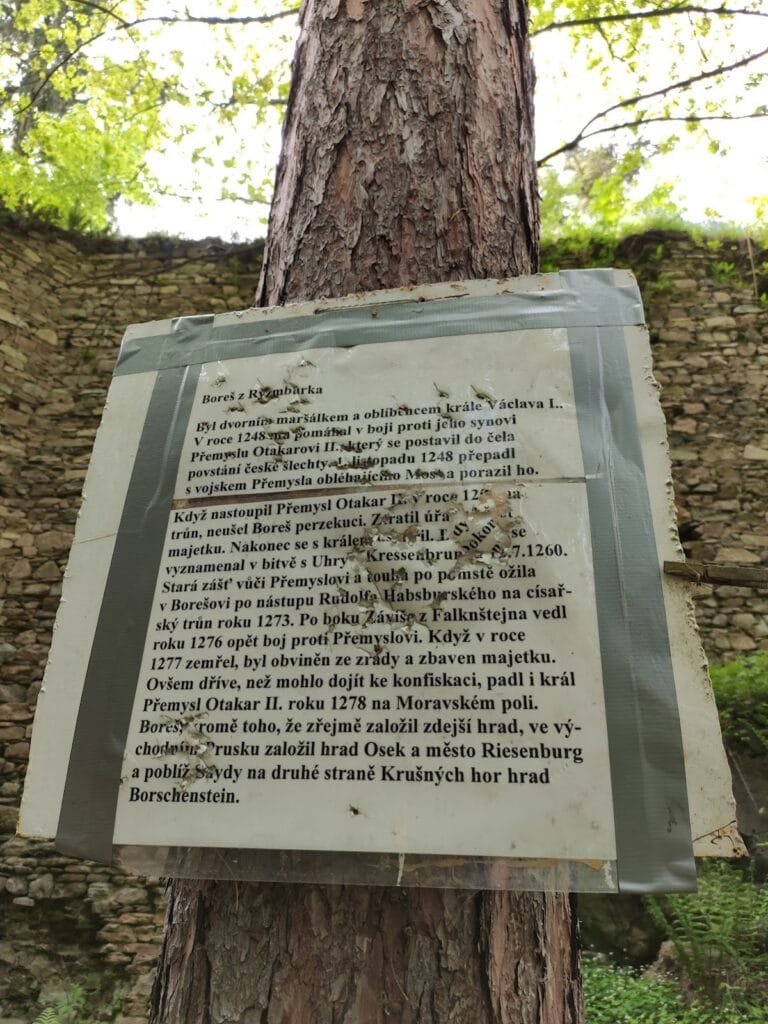 Boreš z Rýzmburka
Byl dvorním maršálkem a oblíbencem krále Václava I..
V roce 1248 mu pomáhal v boji proti jeho synovi
Přemyslu Otakarovi II., který se postavil do čela
povstání české šlechty. listopadu 1248 přepadl
s vojskem Přemysla obléhajícího Most a porazil ho.
Když nastoupil Přemysl Otakar II. v roce na
trůn, neušel Boreš perzekuci. Ztratil
majetku. Nakonec se s králem se
vyznamenal v bitvě s Uhry Kressenbrunnu .7.1260.
Stará zášť vůči Přemyslovi a touha po pomstě ožila
v Borešovi po nástupu Rudolfa Habsburského na císař-
ský trůn roku 1273. Po boku Záviše z Falknštejna vedl
roku 1276 opět boj proti Přemyslovi. Když v roce
1277 zemřel, byl obviněn ze zrady a zbaven majetku.
Ovšem dříve, než mohlo dojít ke konfiskaci, padl i král
Přemysl Otakar II. roku 1278 na Moravském poli.
Boreš, kromě toho, že zřejmě založil zdejší hrad, ve vý-
chodním Prusku založil hrad Osek a město Riesenburg
a poblíž Saydy na druhé straně Krušných hor hrad
Borschenstein.